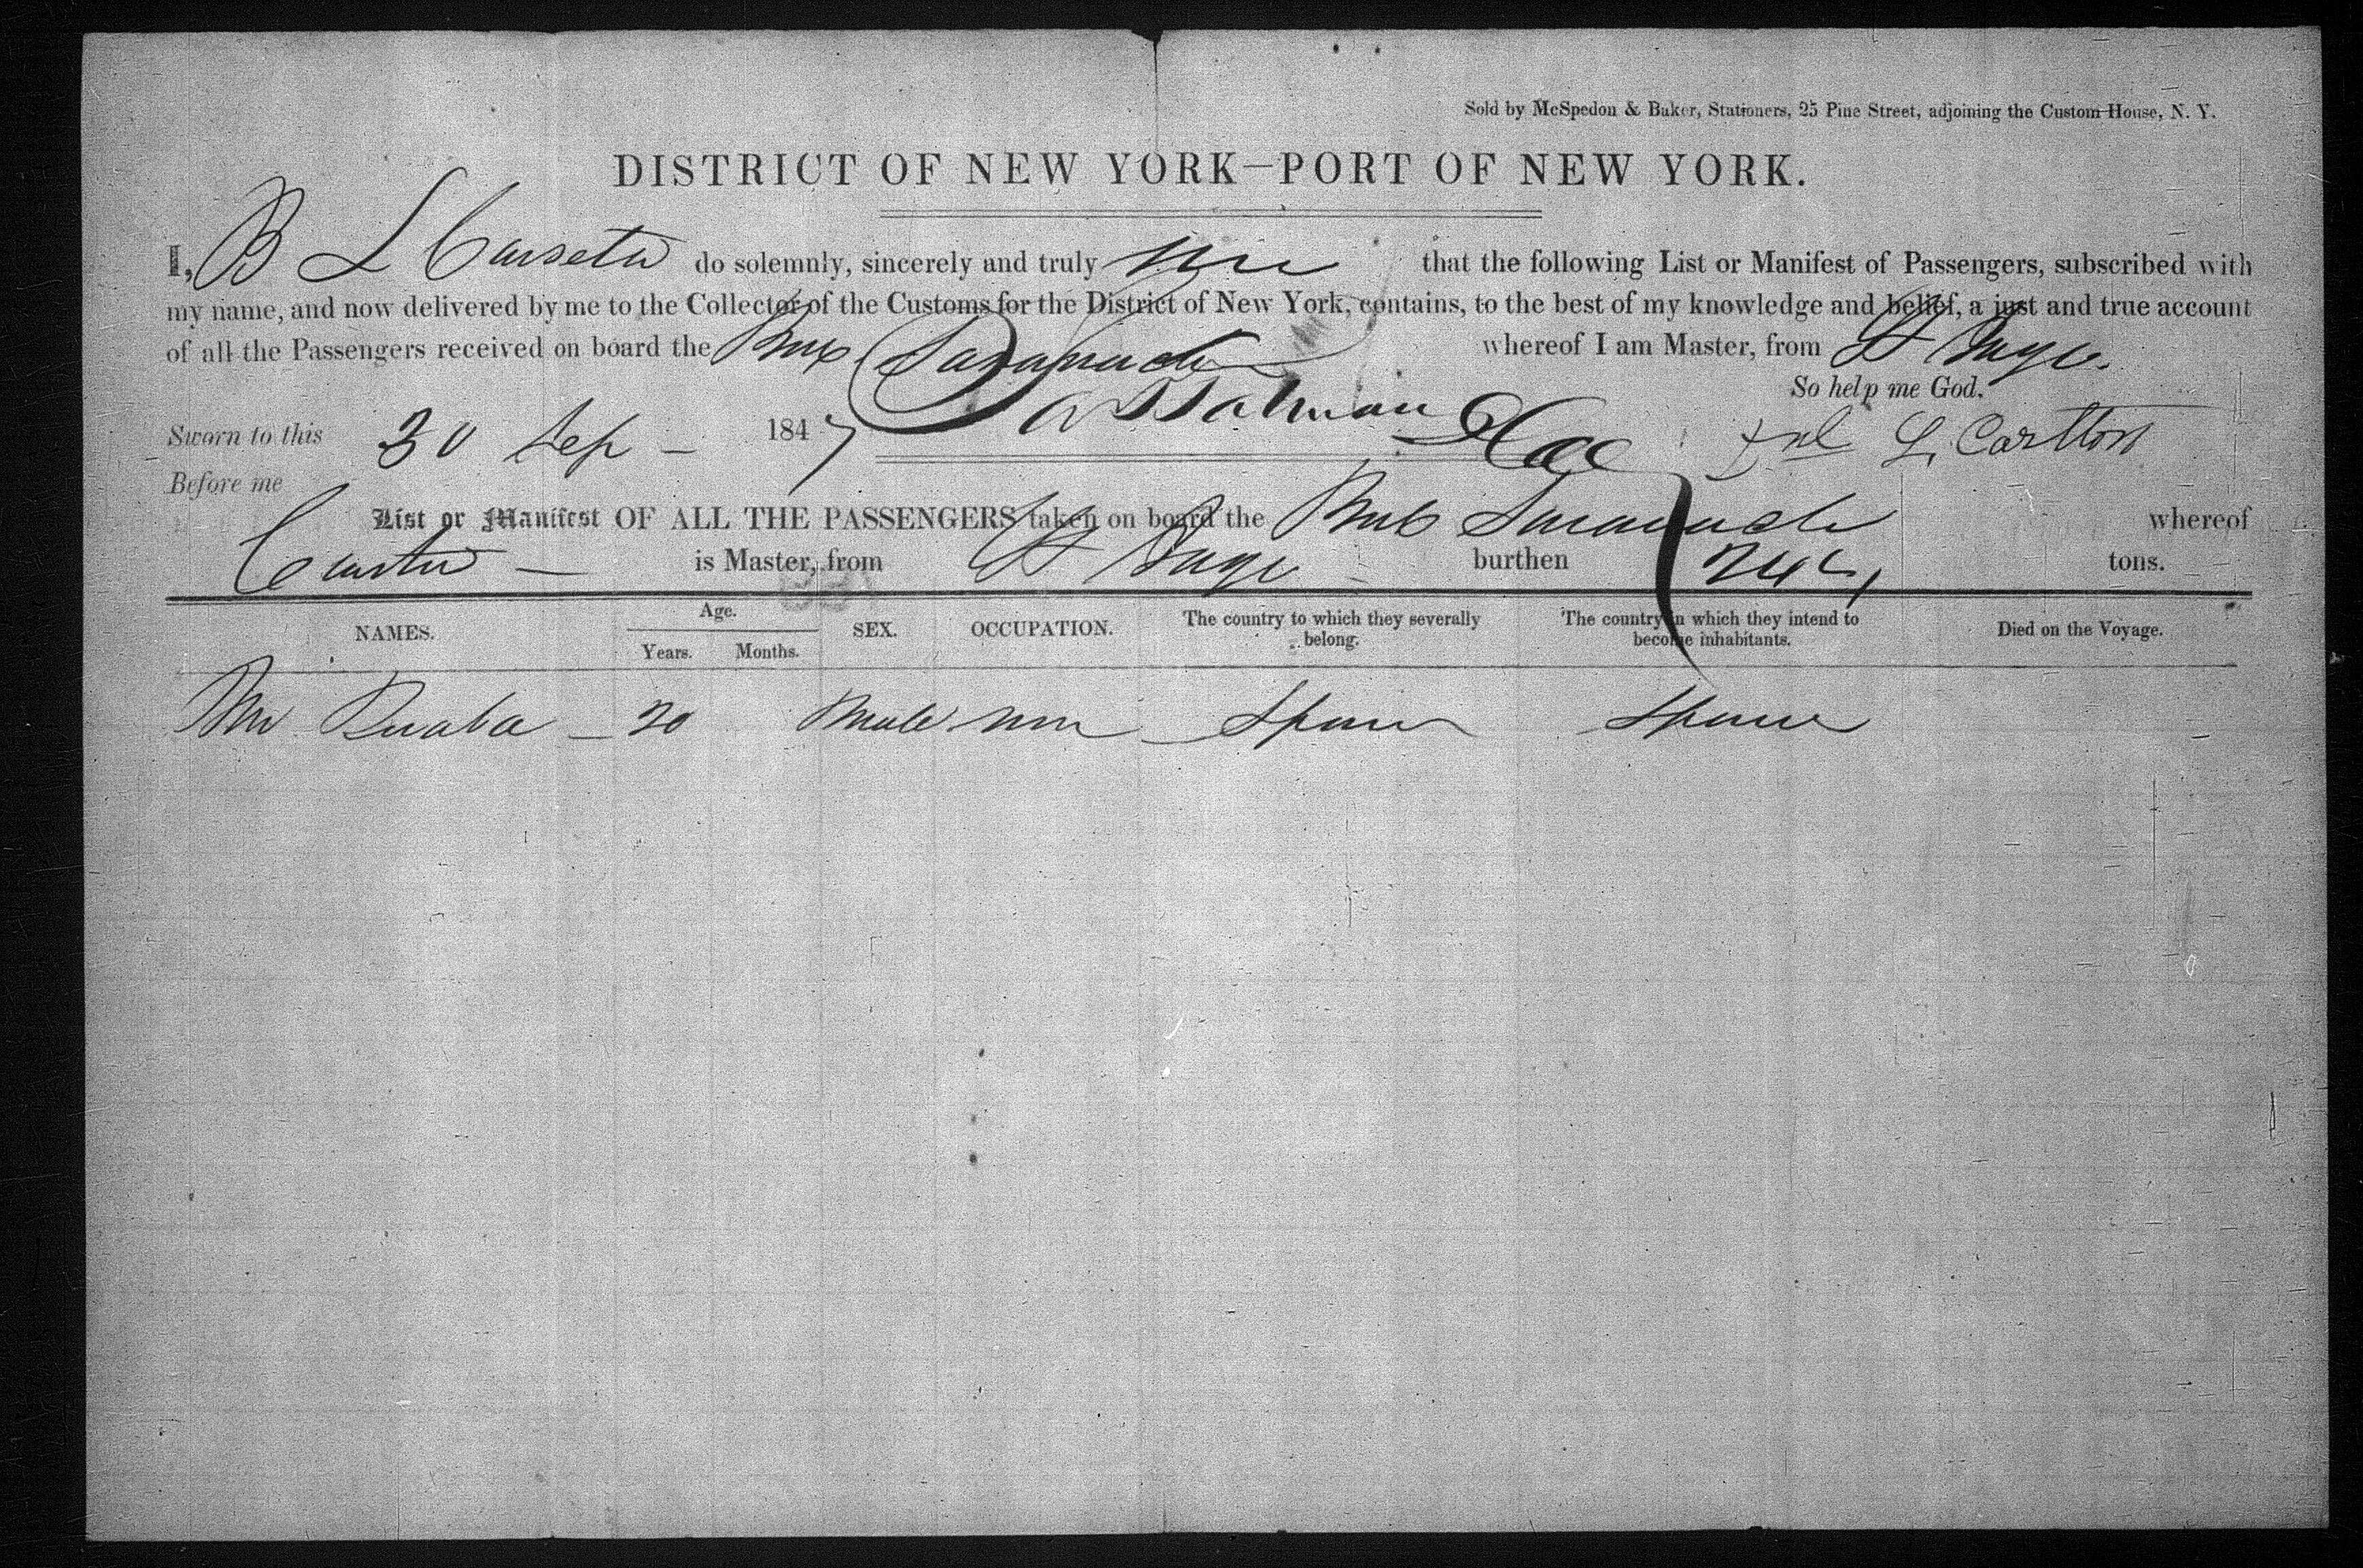 Sold by McSpedon & Baker, Stationers, 25 Pine Street, adjoining the Custom-House, N. Y.
DISTRICT OF NEW YORK—PORT OF NEW YORK.
I, B L do solemnly, sincerely and truly that the following List or Manifest of Passengers, subscribed with
my name, and now delivered by me to the Collector of the Customs for the District of New York, contains, to the best of my knowledge and belief, a just and true account
of all the Passengers received on board the whereof I am Master, from St
So help me God.
Sworn to this 30 Sep - 1847 L. Carlton
Before me
List or Manifest OF ALL THE PASSENGERS taken on board the whereof
is Master, from St burthen tons.
NAMES. Age. Years. Months. SEX. OCCUPATION. The country to which they severally belong. The country in which they intend to become inhabitants. Died on the Voyage.
Mr 20 Male Spain Spain